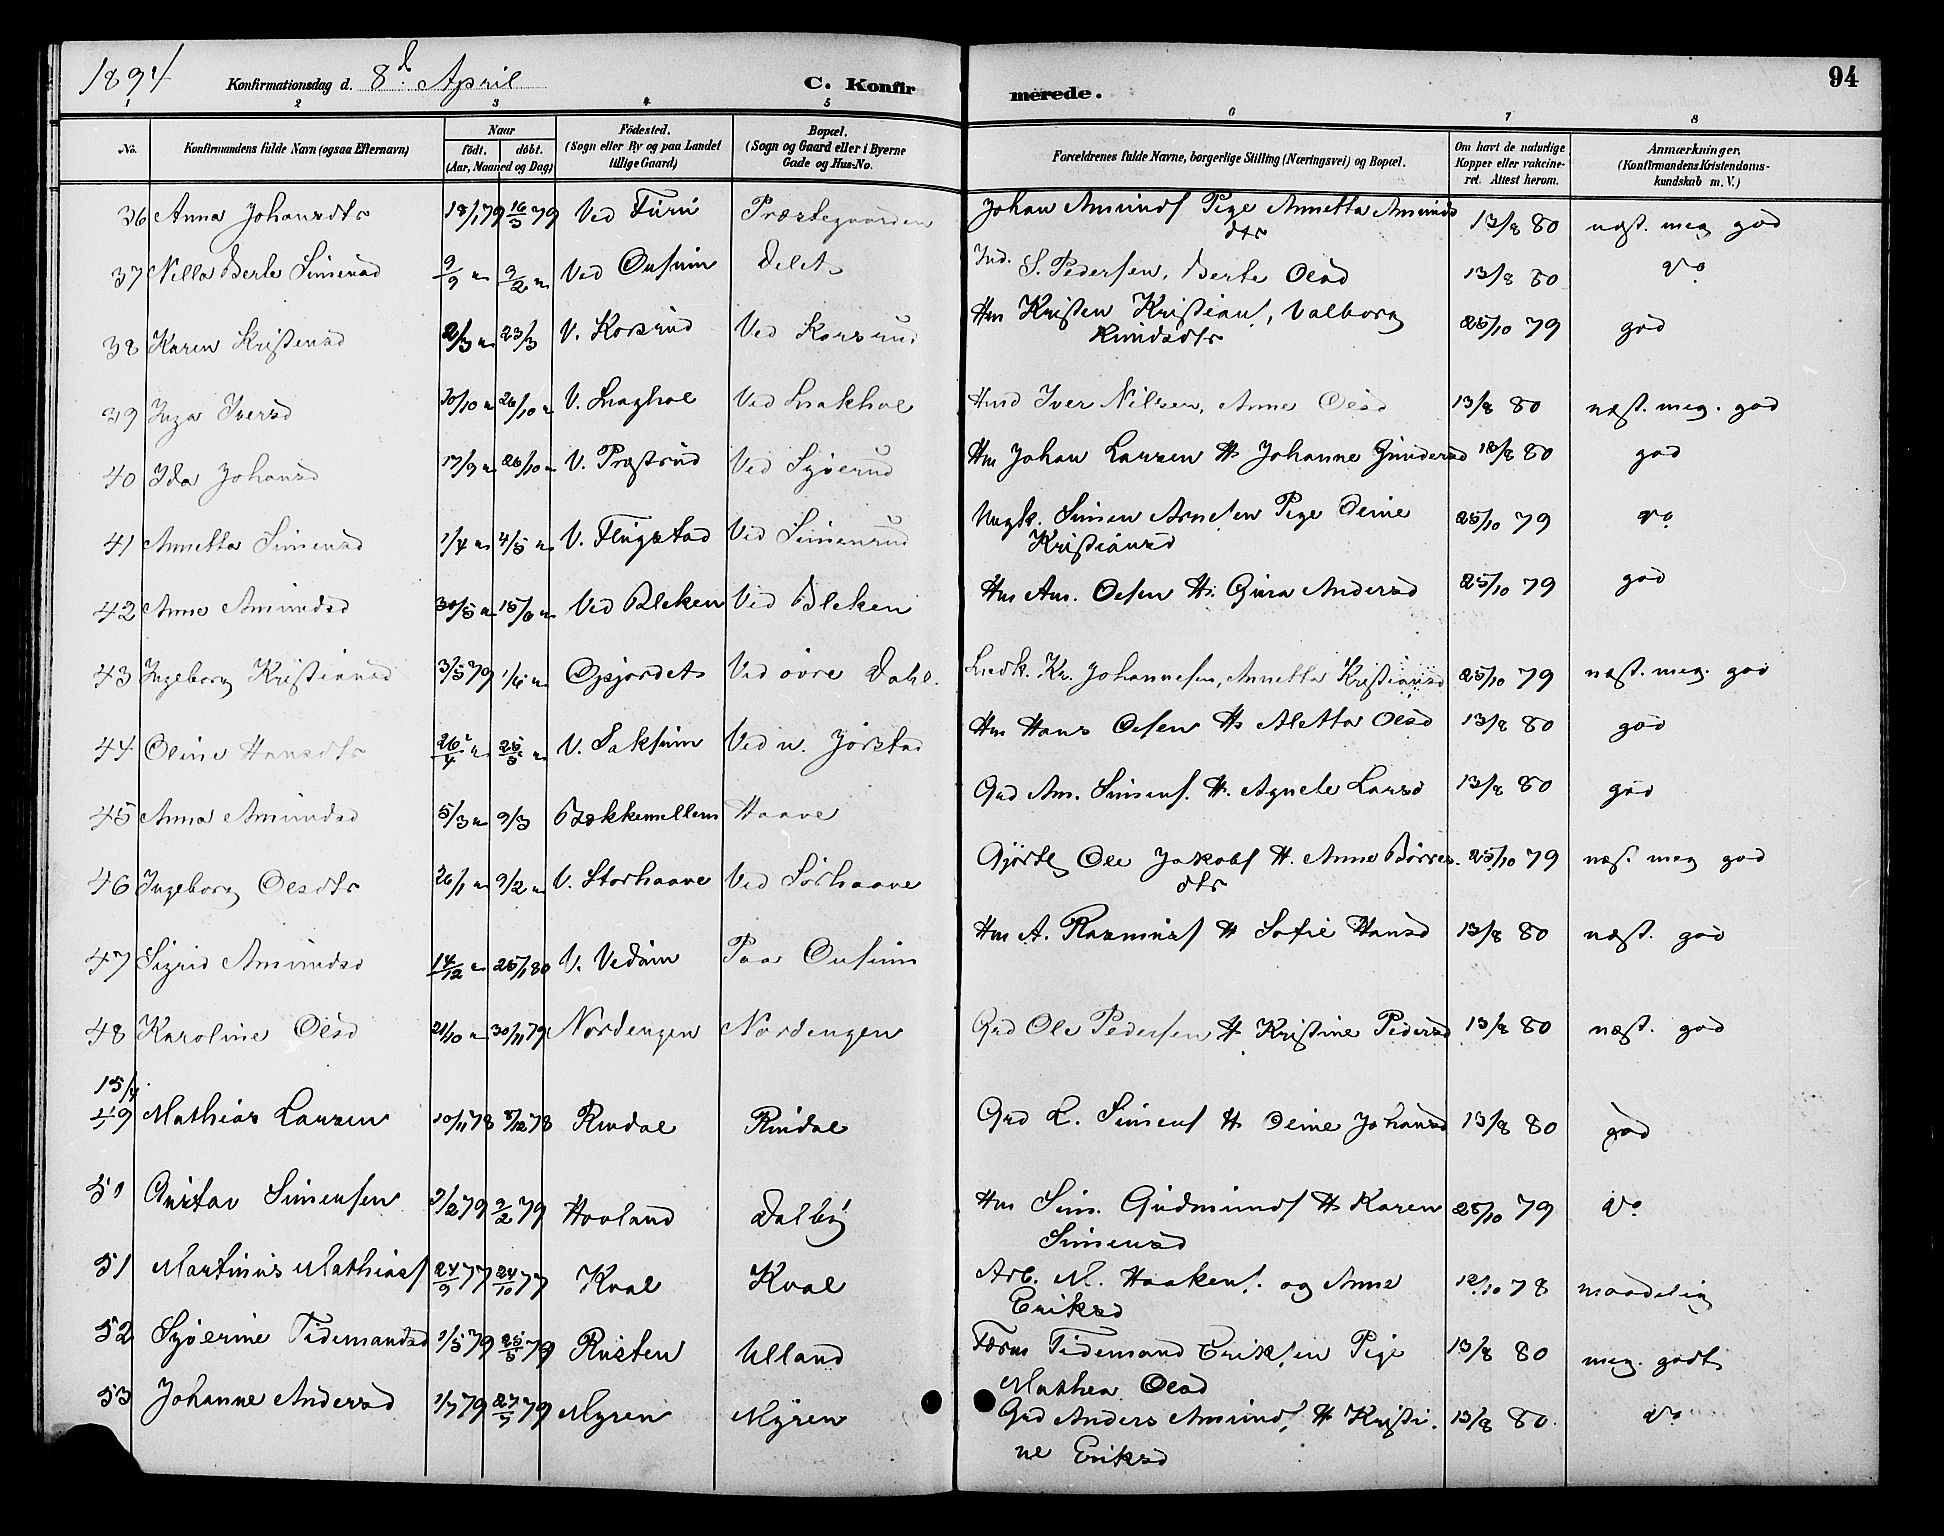 1894 Konfirmationsdag d. 8d. April C. Konfirmerede. 94
1 2 3 4 5 6 7 8
No. Konfirmandens fulde Navn (ogsaa Efternavn) Naar födt. döbt. (Aar, Maaned og Dag) Födested. (Sogn eller By og paa Landet tillige Gaard) Bopæl. (Sogn og Gaard eller i Byerne Gade og Hus-No. Forældrenes fulde Navne, borgerlige Stilling (Næringsvei) og Bopæl. Om havt de naturlige Kopper eller vakcineret. Attest herom. Anmærkninger, (Konfirmandens Kristendomskundskab m. V.)
36 Anna Johansdtr 18/1 79 16/3 79 Ved Furu Præstegaarden Johan Amunds Pige Annetta Amunds
dtr 13/8 80 næst. meg god
37 Nella Berte Simensd 9/9 " 2/2 " Ved Ousum Delet Ind. S. Pedersen, Berte Olsd 13/8 80 do
38 Karen Kristensd 2/3 " 23/3 V. Korsrud Ved Korsrud Hm Kristen Kristians, Valborg
Knudsdtr 25/10 79 god
39 Inga Iversd 30/10 " 26/10 " V. Lnaghol Ved Lnakhol Hmd Iver Nilsen, Anne Olsd 13/8 80 næst. meg. god
40 Ida Johansd 17/9 " 26/10 " V. Præstrud Ved Syverud Hm Johan Larsen H Johanne Gundersd 13/8 80 god
41 Annetta Simensd 1/4 " 4/5 " V. Flugstad Ved Simenrud Ungk. Simen Arnesen Pige Oline
Kristiansd 25/10 79 do
42 Anne Amundsd 30/5 " 15/6 " Ved Bleken Ved Bleken Hm Am. Olsen H. Gura Andersd 25/10 79 god
43 Ingeborg Kristiansd 3/5 79 1/6 " Opjordet Ved övre Dahl. Kr. Johannesen, Annetta Kristiansd 25/10 79 næst. meg. god
44 Oline Hansdtr 26/4 " 25/5 " V. Saksum Ved n. Jörstad Hm Hans Olsen H Aletta Olsd 13/8 80 god
45 Anna Amundsd 5/3 " 9/3 Bækkemellem Haave Grd Am. Simens. H. Agnete Larsd 13/8 80 god
46 Ingeborg Olsdtr 26/1 " 9/2 " V. Storhaave Ved Sörhaave Gjörtl Ole Jakobs H. Anne Börres-
dtr 25/10 79 næs. meg god
47 Sigrid Amundsd 14/12 " 25/1 80 V. Vedum Paa Ousum Hm A. Rasmus H Sofie Hansd 13/8 80 næst. god
48 Karoline Olsd 21/10 " 30/11 79 Nordengen Nordengen Grd Ole Pedersen H Kristine Pedersd 13/8 80 næst. god
15/4
49 Mathias Larsen 10/11 78 8/12 78 Rindal Rindal Grd L. Simens H Oline Johansd 13/8 80 god
50 Gustav Simensen 2/2 79 9/2 79 Hovland Dalby Hm Sim. Gudmunds H Karen
Simensd 25/10 79 do
51 Martinus Mathias 24/9 77 24/10 77 Kval Kval Arb. M. Haakens. og Anne
Eriksd 12/10 78 maadelig
52 Syverine Tidemandsd 1/5 79 25/5 79 Rusten Ulland Tidemand Eriksen Pige
Mathea Olsd 13/8 80 meg. godt
53 Johanne Andersd 1/7 79 27/7 79 Myren Myren Grd Anders Amunds, H Kristi-
ne Eriksd 13/8 80 do